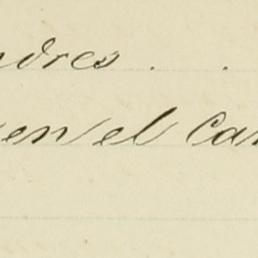 ndres . .
en el Car